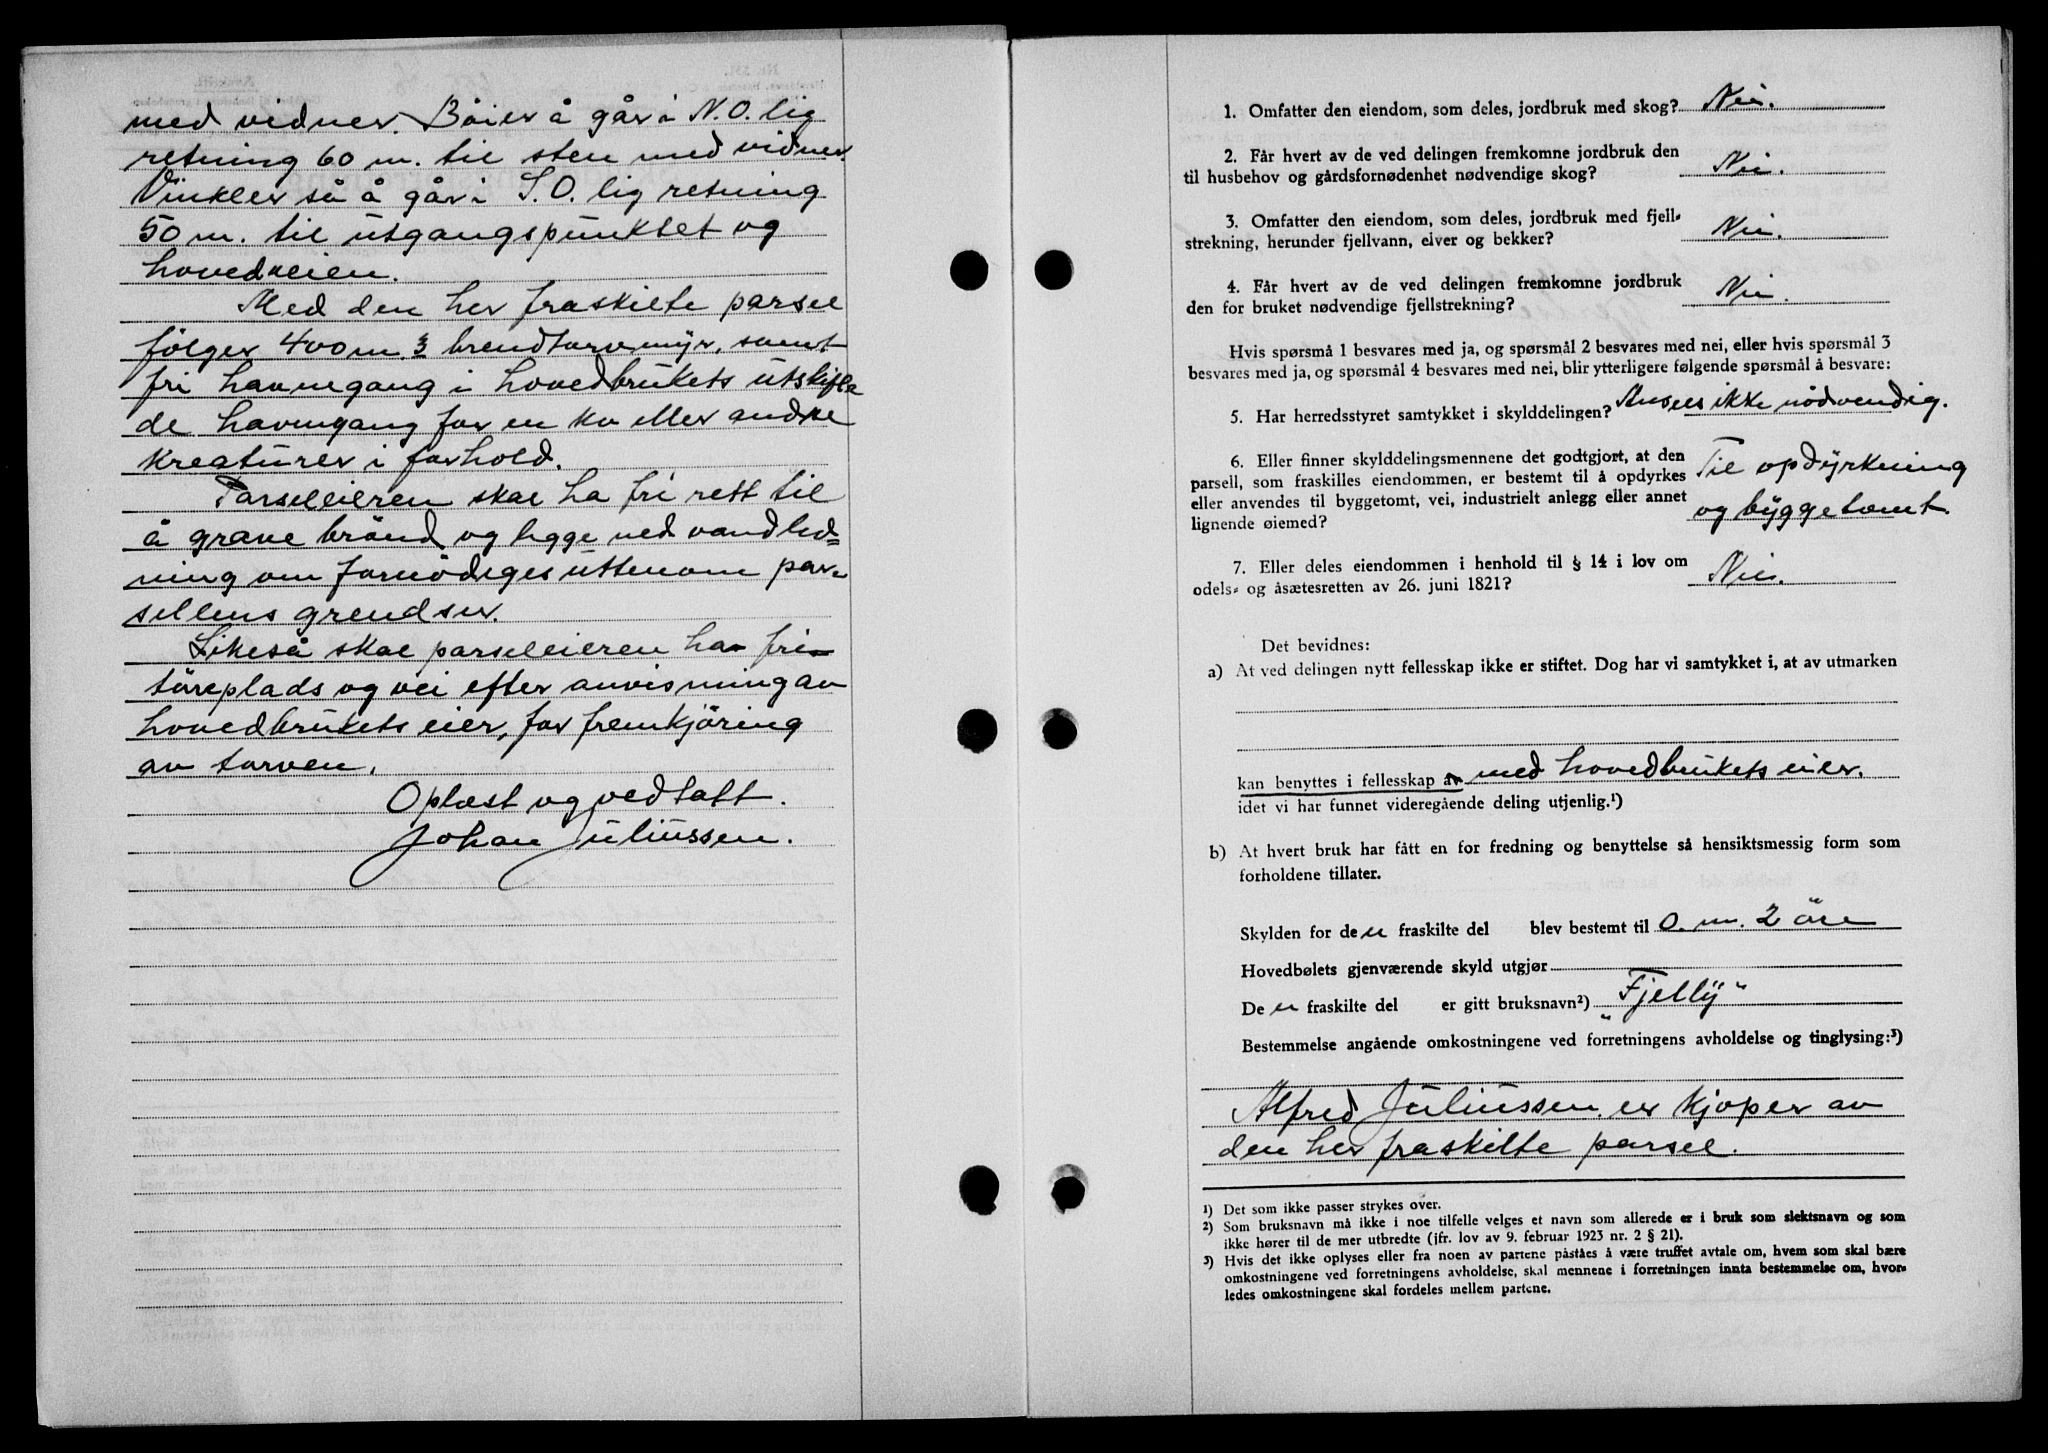 med vidner. Böier å går i N.O. lig
retning 60 m. til sten med vidner.
Vinkler så å går i S.O. lig retning
50 m. til utgangspunktet og
hovedveien.
Med den her fraskilte parsel
følger 400 m. 3 brendtorvmyr, samt
fri havnegang i hovedbrukets utskifta
de havnegang for en ku eller andre
kreaturer i forhold.
Parseleieren skal ha fri rett til
å grave brönd og legge ned vandled=
ning om fornödiges uttenom par-
sellens grendser.
Likeså skal parseleieren ha fri
töreplads og vei efter anvisning av
hovedbrukets eier, for fremkjöring
av torven.
Oplæst og vedtatt.
Johan Juliussen.
1. Omfatter den eiendom, som deles, jordbruk med skog? Nei.
2. Får hvert av de ved delingen fremkomne jordbruk den
til husbehov og gårdsfornødenhet nødvendige skog? Nei.
3. Omfatter den eiendom, som deles, jordbruk med fjell-
strekning, herunder fjellvann, elver og bekker? Nei.
4. Får hvert av de ved delingen fremkomne jordbruk
den for bruket nødvendige fjellstrekning? Nei.
Hvis spørsmå 1 besvares med ja, og spørsmål 2 besvares med nei, eller hvis spørsmål 3
besvares med ja, og spørsmål 4 besvares med nei, blir ytterligere følgende spørsmål å besvare:
5. Har herredsstyret samtykket i skylddelingen? Ansees ikke nödvendig.
6. Eller finner skylddelingsmennene det godtgjort, at den
parsell, som fraskilles eiendommen, er bestemt til å opdyrkes Til opdyrkning
eller anvendes til byggetomt, vei, industrielt anlegg eller annet
lignende øiemed? og byggetomt.
7. Eller deles eiendommen i henhold til § 14 i lov om
odels- og åsætesretten av 26. juni 1821? Nei.
Det bevidnes:
a) At ved delingen nytt fellesskap ikke er stiftet. Dog har vi samtykket i, at av utmarken
kan benyttes i fellesskap av med hovedbrukets eier.
idet vi har funnet videregående deling utjenlig.¹)
b) At hvert bruk har fått en for fredning og benyttelse så hensiktsmessig form som
forholdene tillater.
Skylden for den fraskilte del blev bestemt til 0. m. 2 öre
Hovedbølets gjenværende skyld utgjør
Den fraskilte del er gitt bruksnavn²) "Fjelly"
Bestemmelse angående omkostningene ved forretningens avholdelse og tinglysing:³)
Alfred Juliussen er kjøper av
den her fraskilte parsel.
¹) Det som ikke passer strykes over.
²) Som bruksnavn må ikke i noe tilfelle velges et navn som allerede er i bruk som slektsnavn og som
ikke hører til de mer utbredte (jfr. lov av 9. februar 1923 nr. 2 § 21).
³) Hvis det ikke oplyses eller fra noen av partene påståes å være truffet avtale om, hvem som skal bære
omkostningene ved forretningens avholdelse, skal mennene i forretningen innta bestemmelse om, hvor-
ledes omkostningene skal fordeles mellem partene.